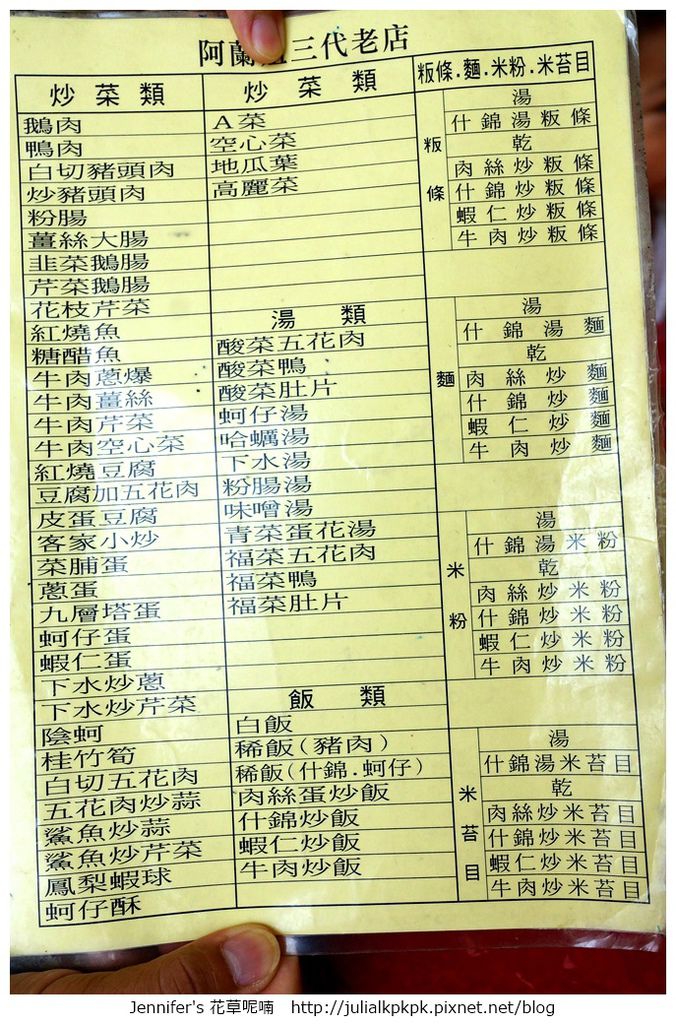 阿蘭 三代老店
炒菜類
鵝肉
鴨肉
白切豬頭肉
炒豬頭肉
粉腸
薑絲大腸
韭菜鵝腸
芹菜鵝腸
花枝芹菜
紅燒魚
糖醋魚
牛肉蔥爆
牛肉薑絲
牛肉芹菜
牛肉空心菜
紅燒豆腐
豆腐加五花肉
皮蛋豆腐
客家小炒
菜脯蛋
蔥蛋
九層塔蛋
蚵仔蛋
蝦仁蛋
下水炒蔥
下水炒芹菜
陰蚵
桂竹筍
白切五花肉
五花肉炒蒜
鯊魚炒蒜
鯊魚炒芹菜
鳳梨蝦球
蚵仔酥
炒菜類
A菜
空心菜
地瓜葉
高麗菜
湯類
酸菜五花肉
酸菜鴨
酸菜肚片
蚵仔湯
哈蠣湯
下水湯
粉腸湯
味噌湯
青菜蛋花湯
福菜五花肉
福菜鴨
福菜肚片
飯類
白飯
稀飯(豬肉)
稀飯(什錦.蚵仔)
肉絲蛋炒飯
什錦炒飯
蝦仁炒飯
牛肉炒飯
粄條.麵.米粉.米苔目
粄條
湯
什錦湯粄條
乾
肉絲炒粄條
什錦炒粄條
蝦仁炒粄條
牛肉炒粄條
麵
湯
什錦湯麵
乾
肉絲炒麵
什錦炒麵
蝦仁炒麵
牛肉炒麵
米粉
湯
什錦湯米粉
乾
肉絲炒米粉
什錦炒米粉
蝦仁炒米粉
牛肉炒米粉
米苔目
湯
什錦湯米苔目
乾
肉絲炒米苔目
什錦炒米苔目
蝦仁炒米苔目
牛肉炒米苔目
Jennifer's 花草呢喃 http://julialkpkpk.pixnet.net/blog